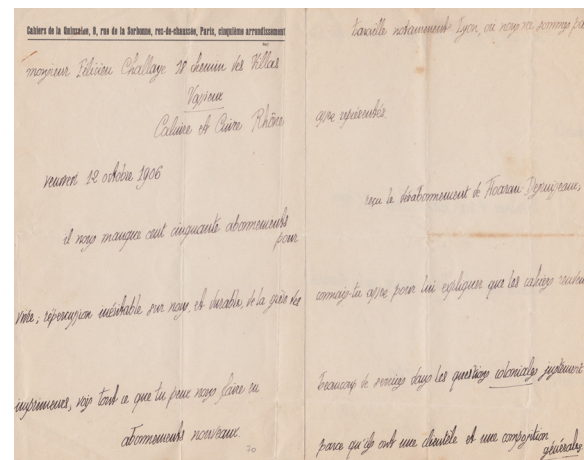 Cahiers de la Quinzaine, 8, rue de la Sorbonne, rez-de-chaussée, Paris, cinquième arrondissement
monsieur Félicien Challaye 18 chemin des Villas
Vassieux
Caluire et Cuire Rhône
vendredi 12 octobre 1906
il nous manque cent cinquante abonnements
pour
vivre; répercussion inévitable sur nous, et durable, de la grève des
imprimeurs, vois tout ce que tu peux nous faire en
abonnements nouveaux
70
travaille notamment Lyon, où nous ne sommes pas
assez représentés.
reçu le désabonnement de Hoarau Desruisseaux,
connais-tu assez pour lui expliquer que les cahiers rendent
beaucoup de services dans les questions coloniales justement
parce qu'ils ont une clientèle et une conception
générales